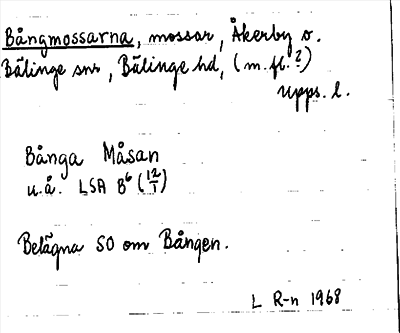 Bångmossarna, mossar, Åkerby o.
Bälinge snr, Bälinge hd, (m.fl.?)
Upps. l.
Bånga Måsan
u.å. LSA B6 (12/1)
Belägna SO om Bången.
L R-n 1968